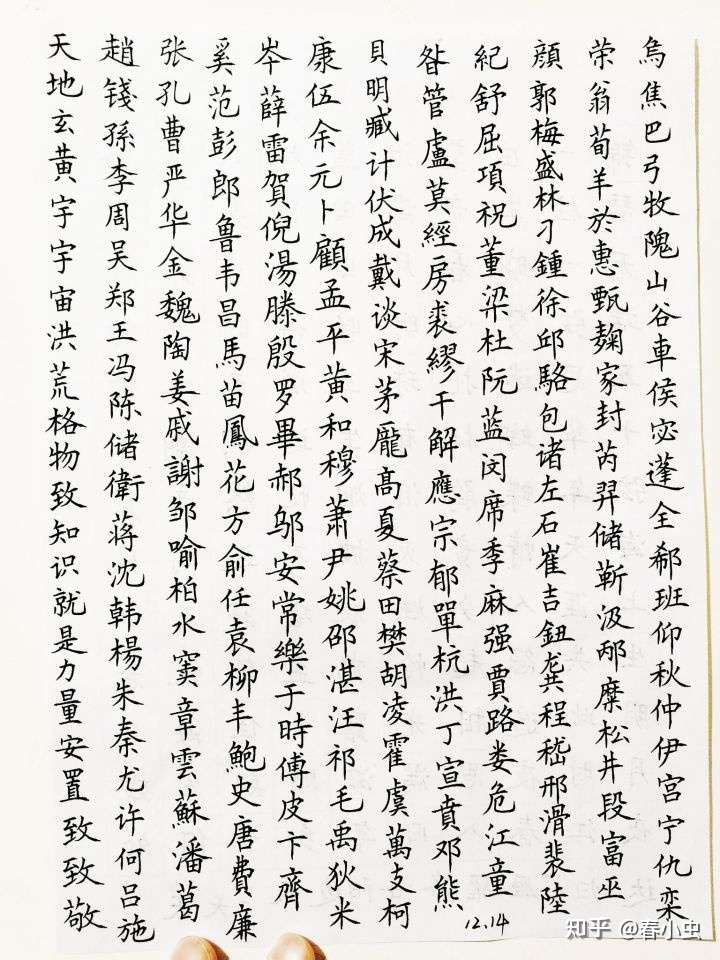 天地玄黄宇宇宙洪荒格物致知识就是力量安置致致敬
趙錢孫李周吴郑王冯陈储衛蒋沈韩楊朱秦尤许何吕施
张孔曹严华金魏陶姜戚謝邹喻柏水窦章雲蘇潘葛
奚范彭郎鲁韦昌馬苗鳳花方俞任袁柳丰鲍史唐費廉
岑薛雷賀倪湯滕殷罗畢郝邬安常樂于時傅皮卞齊
康伍余元卜顧孟平黄和穆萧尹姚邵湛汪祁毛禹狄米
貝明臧计伏成戴谈宋茅龐高夏蔡田樊胡凌霍虞萬支柯
昝管盧莫經房裘繆干解應宗郁單杭洪丁宣賁邓熊
紀舒屈項祝董梁杜阮蓝闵席季麻强賈路娄危江童
顔郭梅盛林刁鍾徐邱駱包诸左石崔吉鈕龚程嵇邢滑裴陸
荣翁荀羊於惠甄麹家封芮羿储靳汲邴糜松井段富巫
烏焦巴弓牧隗山谷車侯宓蓬全郗班仰秋仲伊宫宁仇栾
12.14
知乎 @春小虫